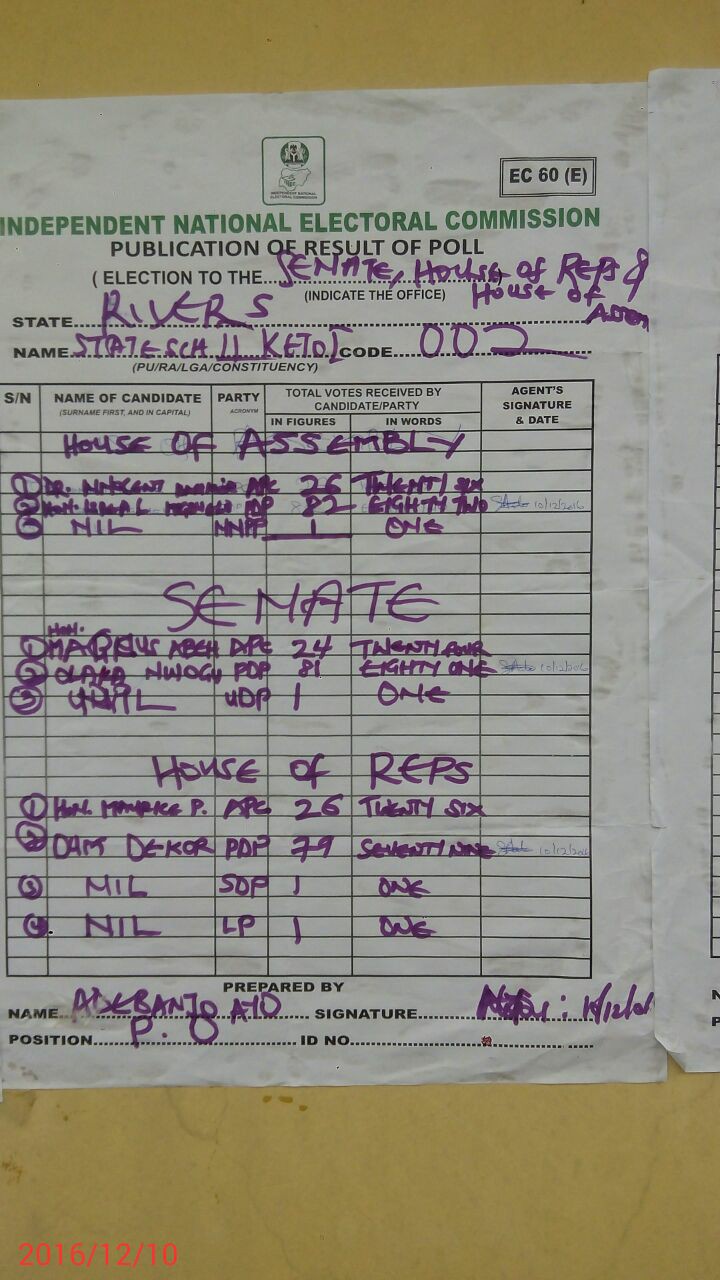 EC 60 (E)
INDEPENDENT NATIONAL ELECTORAL COMMISSION
PUBLICATION OF RESULT OF POLL
( ELECTION TO THE SENATE, HOUSE OF REPS &
(INDICATE THE OFFICE) HOUSE OF
STATE RIVERS
NAME STATE SCH II KETOI CODE 002
(PU/RA/LGA/CONSTITUENCY)
S/N NAME OF CANDIDATE (SURNAME FIRST, AND IN CAPITAL) PARTY ACRONYM TOTAL VOTES RECEIVED BY CANDIDATE/PARTY AGENT'S SIGNATURE & DATE
IN FIGURES IN WORDS
HOUSE OF ASSEMBLY
1 DR. INNOCENT APC 26 TWENTY SIX
2 HON. PDP 82 EIGHTY TWO 10/12/2016
3 NIL NNPP 1 ONE
SENATE
1 HON. MAGNUS ABEH APC 24 TWENTY FOUR
2 OLAKA NWOGU PDP 81 EIGHTY ONE 10/12/2016
3 UDP 1 ONE
HOUSE OF REPS
1 HON. MAURICE P. APC 26 TWENTY SIX
2 DEKOR PDP 79 SEVENTY NINE 10/12/2016
3 NIL SDP 1 ONE
4. NIL LP 1 ONE
PREPARED BY
NAME ADEBANJO AYO SIGNATURE
POSITION P. O ID NO.
2016/12/10